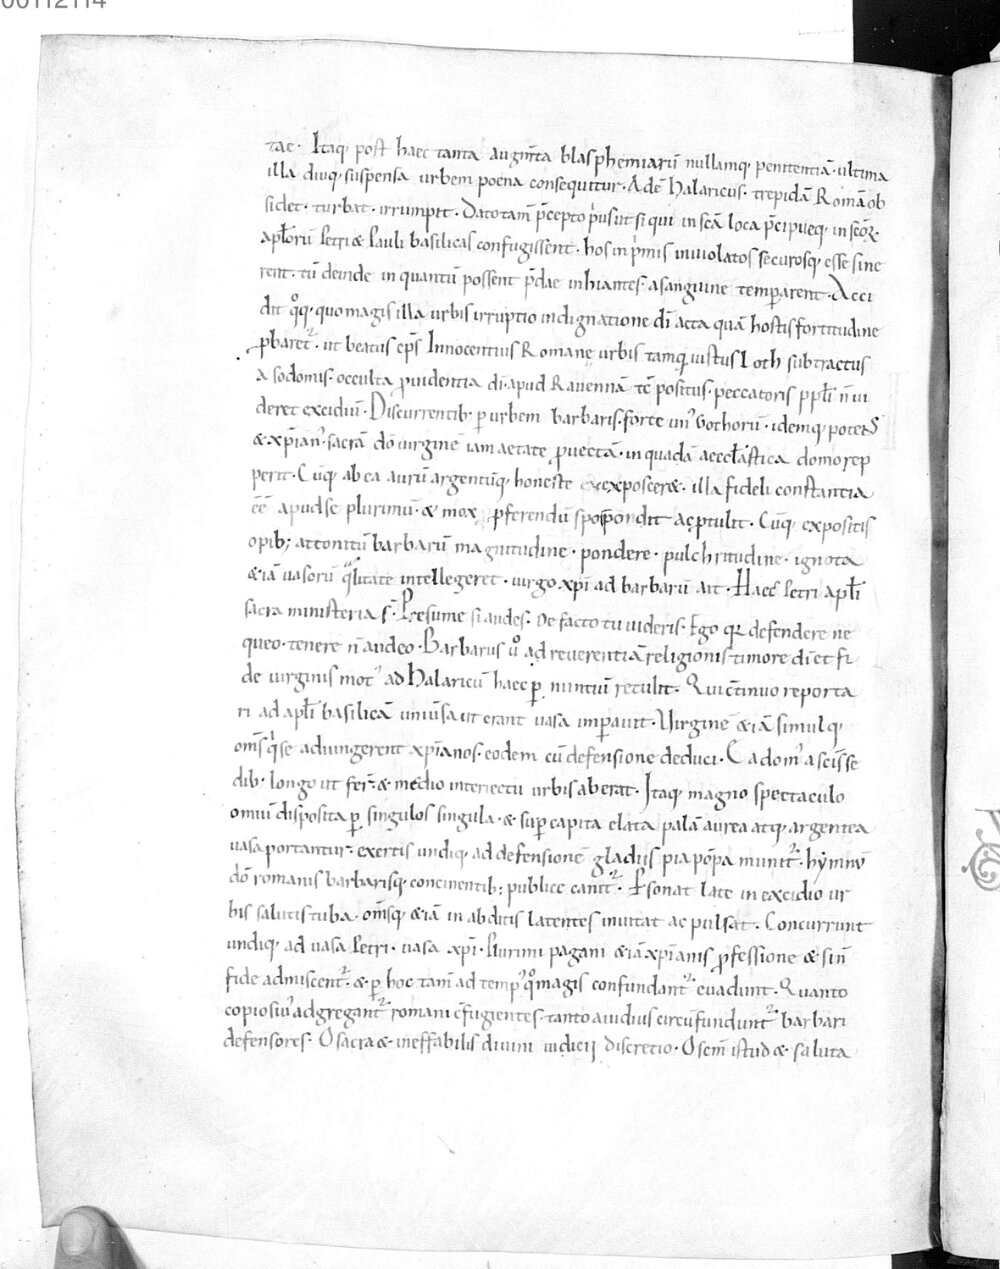 00112114
tae· Itaq· post haec tanta augm̅ta blasphemiarū nullamq· penitentiā·ultima
illa diuq·suspensa urbem poena consequitur·Adē halaricus· trepidā Romā ob
sidet· turbat· irrumpit· Dato tam̅ p̅cepto p̓us ut si qui in scā loca p̅cipueq· in scōꝝ·
apl̅orū Petri & Pauli basilicas confugissent· hos in p̓mis inuiolatos securosq· esse sine
rent· tū deinde in quantū possent p̅dae inhiantes· a sanguine temꝑarent·Acci
dit q̊q· quo magis illa urbis irruptio indignatione dī acta quā hostis fortitudine
ꝓbaret᷑· ut beatus ep̅s Innocentius Romanę urbis tamq̅ iustus Loth subtractus
a sodomis· occulta ꝓuidentia dī·apud Rauennā tc̅ positus·peccatoris ppl̅i n̅ ui
deret excidiū·Discurrentib· ꝑ urbem barbaris·forte un᾽ Gothorū·idemq· potens
& xp̅ian᾽·sacrā dō uirginē iam aetate ꝓuectā·in quadā aeccl̅astica domo rep
perit·Cūq· ab ea aurū argentūq· honeste exposcer&·illa fideli constantia
ēē apud se plurimū·& mox ꝓferendū spopondit ac ꝓtulit·Cūq· expositis
opib; attonitū barbarū magnitudine·pondere·pulchritudine·ignota
&iā uasorū q̅litate intellegeret·uirgo xp̅i ad barbarū ait·Haec Petri apl̅i
sacra ministeria s̅·Presume si audes·De facto tu uideris·Ego q̅ defendere ne
queo·tenere n̅ audeo·Barbarus ů ad reuerentiā religionis timore dī et fi
de uirginis mot᾽ ad Halaricū haec ꝑ nuntiū retulit·Qui c̅tinuo reporta
ri ad apl̅i basilicā uniu̅sa ut erant uasa imꝑauit·Virginē &iā simulq·
om̅s q̓ se adiungerent xp̅ianos·eodem cū defensione deduci·Ea dom᾽ a sc̅is se
dib· longo ut fer̅t·& medio interiectu urbis aberat·Itaq· magno spectaculo
omiū disposita ꝑ singulos singula·& suꝑ capita elata palā aurea atq· argentea
uasa portantur·exertis undiq· ad defensionē gladiis pia pōpa munit᷑·hymnū
dō romanis barbarisq· concinentib; publice canit᷑·Psonat late in excidio ur
bis salutis tuba·om̅sq· &iā in abditis latentes inuitat ac pulsat·Concurrunt
undiq· ad uasa Petri·uasa xp̅i·Plurimi pagani &iā xp̅ianis ꝓfessione & si n̅
fide admiscent᷑·& ꝑ hoc tam̅ ad temp᾽ q̊ magis confundant᷑ euadunt·Quanto
copiosi᾽ adgregant᷑ romani c̅fugientes·tanto auidius circūfundunt᷑ barbari
defensores·O sacra & ineffabilis diuini iudicij discretio·O sc̅m istud & saluta